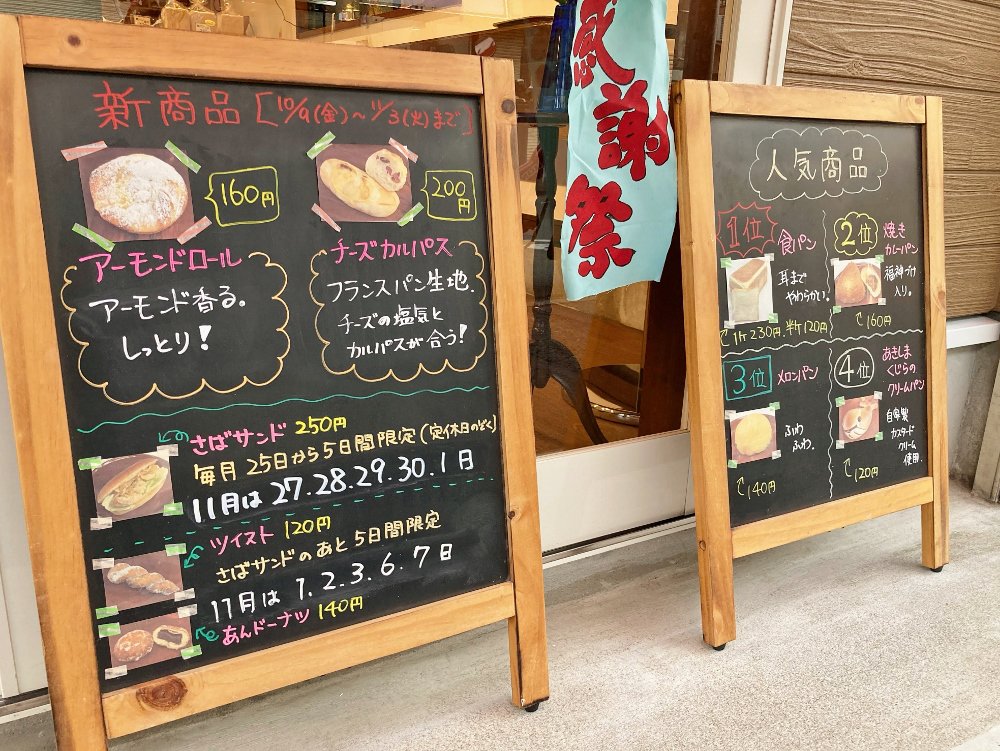 新商品 [10/9(金)～11/3(火)まで]
160円
アーモンドロール
アーモンド香る。
しっとり!
200円
チーズカルパス
フランスパン生地。
チーズの塩気と
カルパスが合う!
さばサンド 250円
毎月25日から5日間限定(定休日のぞく)
11月は27.28.29.30.1日
ツイスト 120円
さばサンドのあと5日間限定
11月は 1.2.3.6.7日
あんドーナツ 140円
感謝祭
人気商品
1位 食パン
耳まで
やわらかい。
1斤230円.半斤120円
2位 焼き
カレーパン
福神づけ
入り。
160円
3位 メロンパン
ふわ
ふわ。
140円
4位 あきしま
くじらの
クリームパン
自家製
カスタード
クリーム
使用。
120円